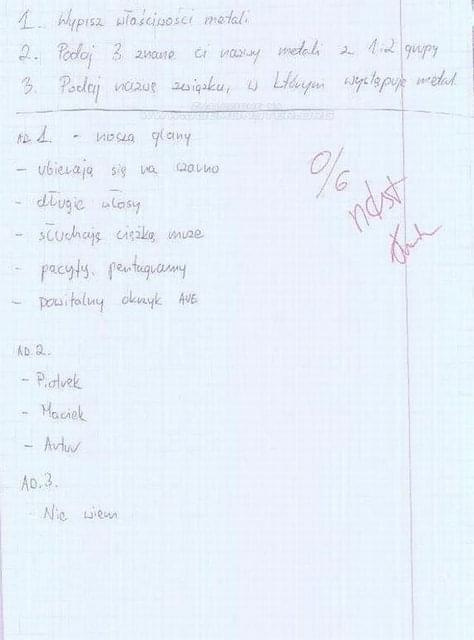 1. Wypisz właściwości metali
2. Podaj 3 znane ci nazwy metali z 1 i 2 grupy
3. Podaj nazwę związku, w którym występuje metal.
AD.1 - noszą glany
- ubierają się na czarno
- długie włosy
- słuchają ciężką muze
- pacyfy, pentagramy
- powitalny okrzyk AVE
0/6
ndst
AD.2.
- Piotrek
- Maciek
- Artur
AD.3.
- Nie wiem